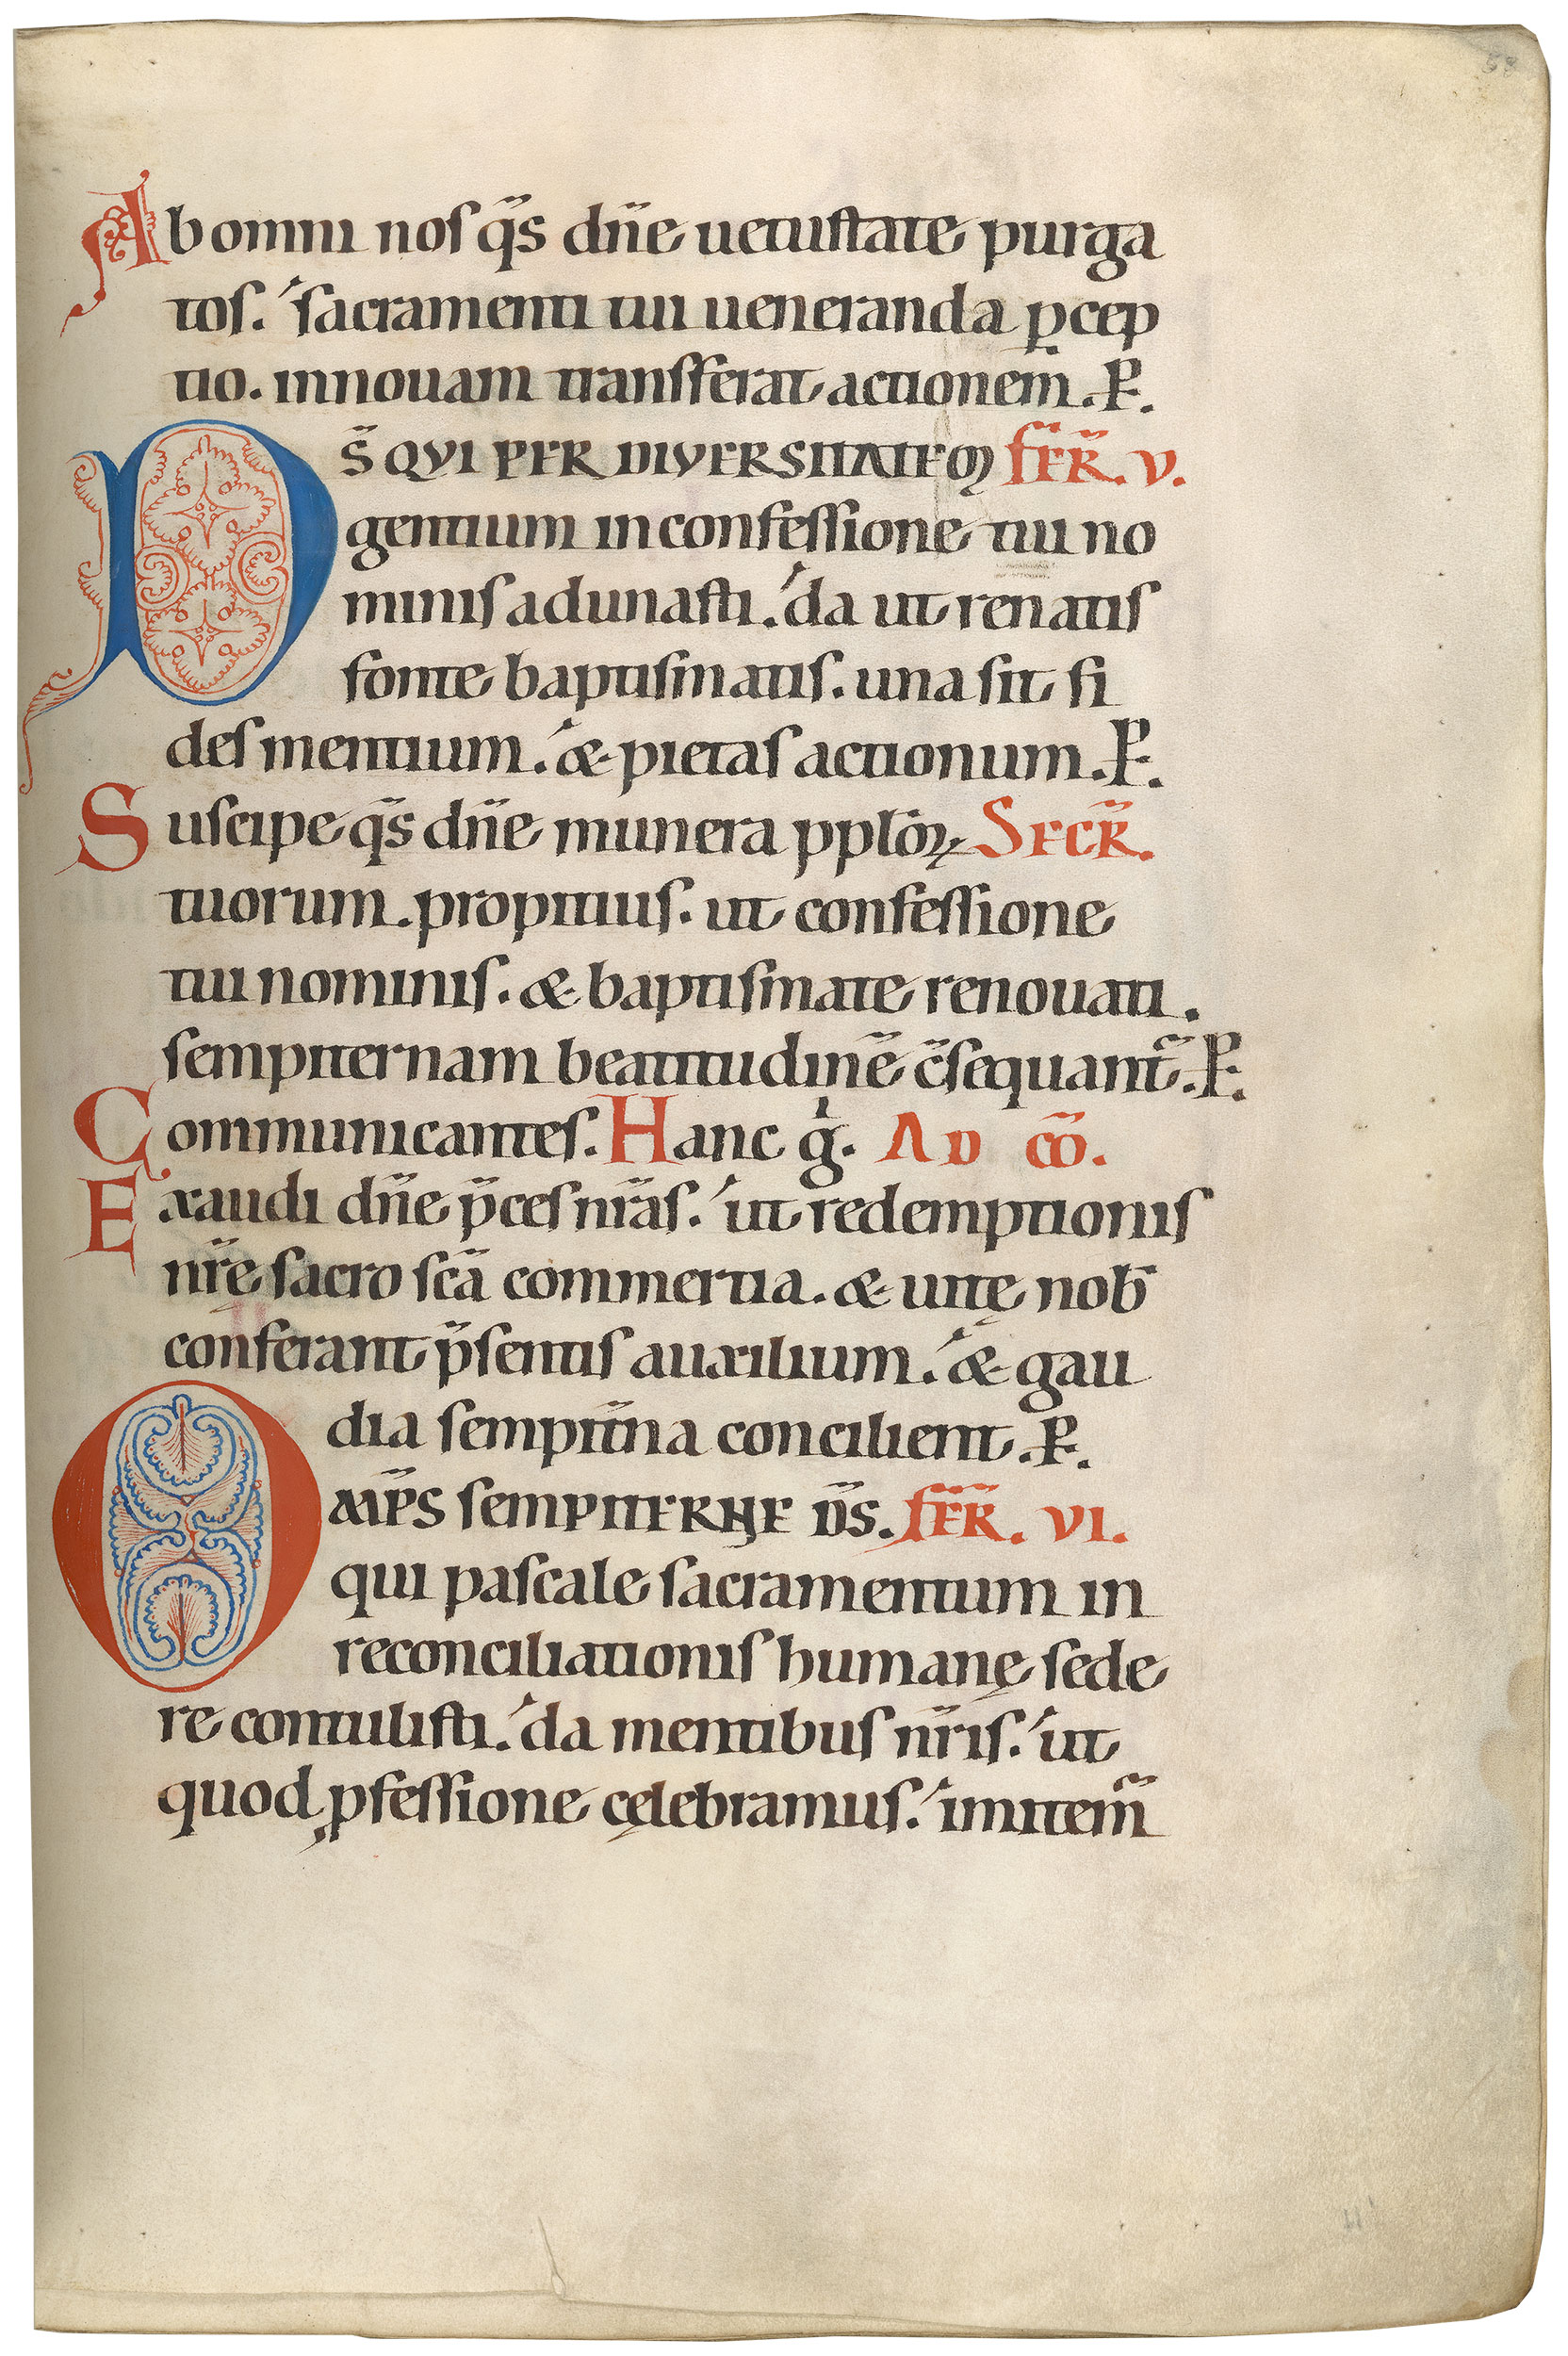 58
Ab omni nos q̄s dn̄e uetustate purga
tos. sacramenti tui ueneranda ꝑcep
tio. innouam transferat actionem. P.
DS̄ QVI PER DIVERSITATEM FER̄. V.
gentium in confessione tui no
minis adunasti. da ut renatis
fonte baptismatis. una sit fi
des mentium. & pietas actionum. P.
Suscipe q̄s dn̄e munera pplōꝝ SECR̄.
tuorum. propitius. ut confessione
tui nominis. & baptismate renouati.
sempiternam beatitudinē c̄sequant̄. P.
Communicantes. Hanc g̍. AD CŌ.
Exaudi dn̄e p̄ces nr̄as. ut redemptionis
nr̄ę sacro scā commertia. & uitę nob̄
conferant p̄sentis auxilium. & gau
dia sempit̄na concilient. P.
OMP̄S sempiterne DS̄. FER̄. VI.
qui pascale sacramentum in
reconciliationis humanę fede
re contulisti. da mentibus nr̄is. ut
quod ꝓfessione cęlebramus. imitem̄